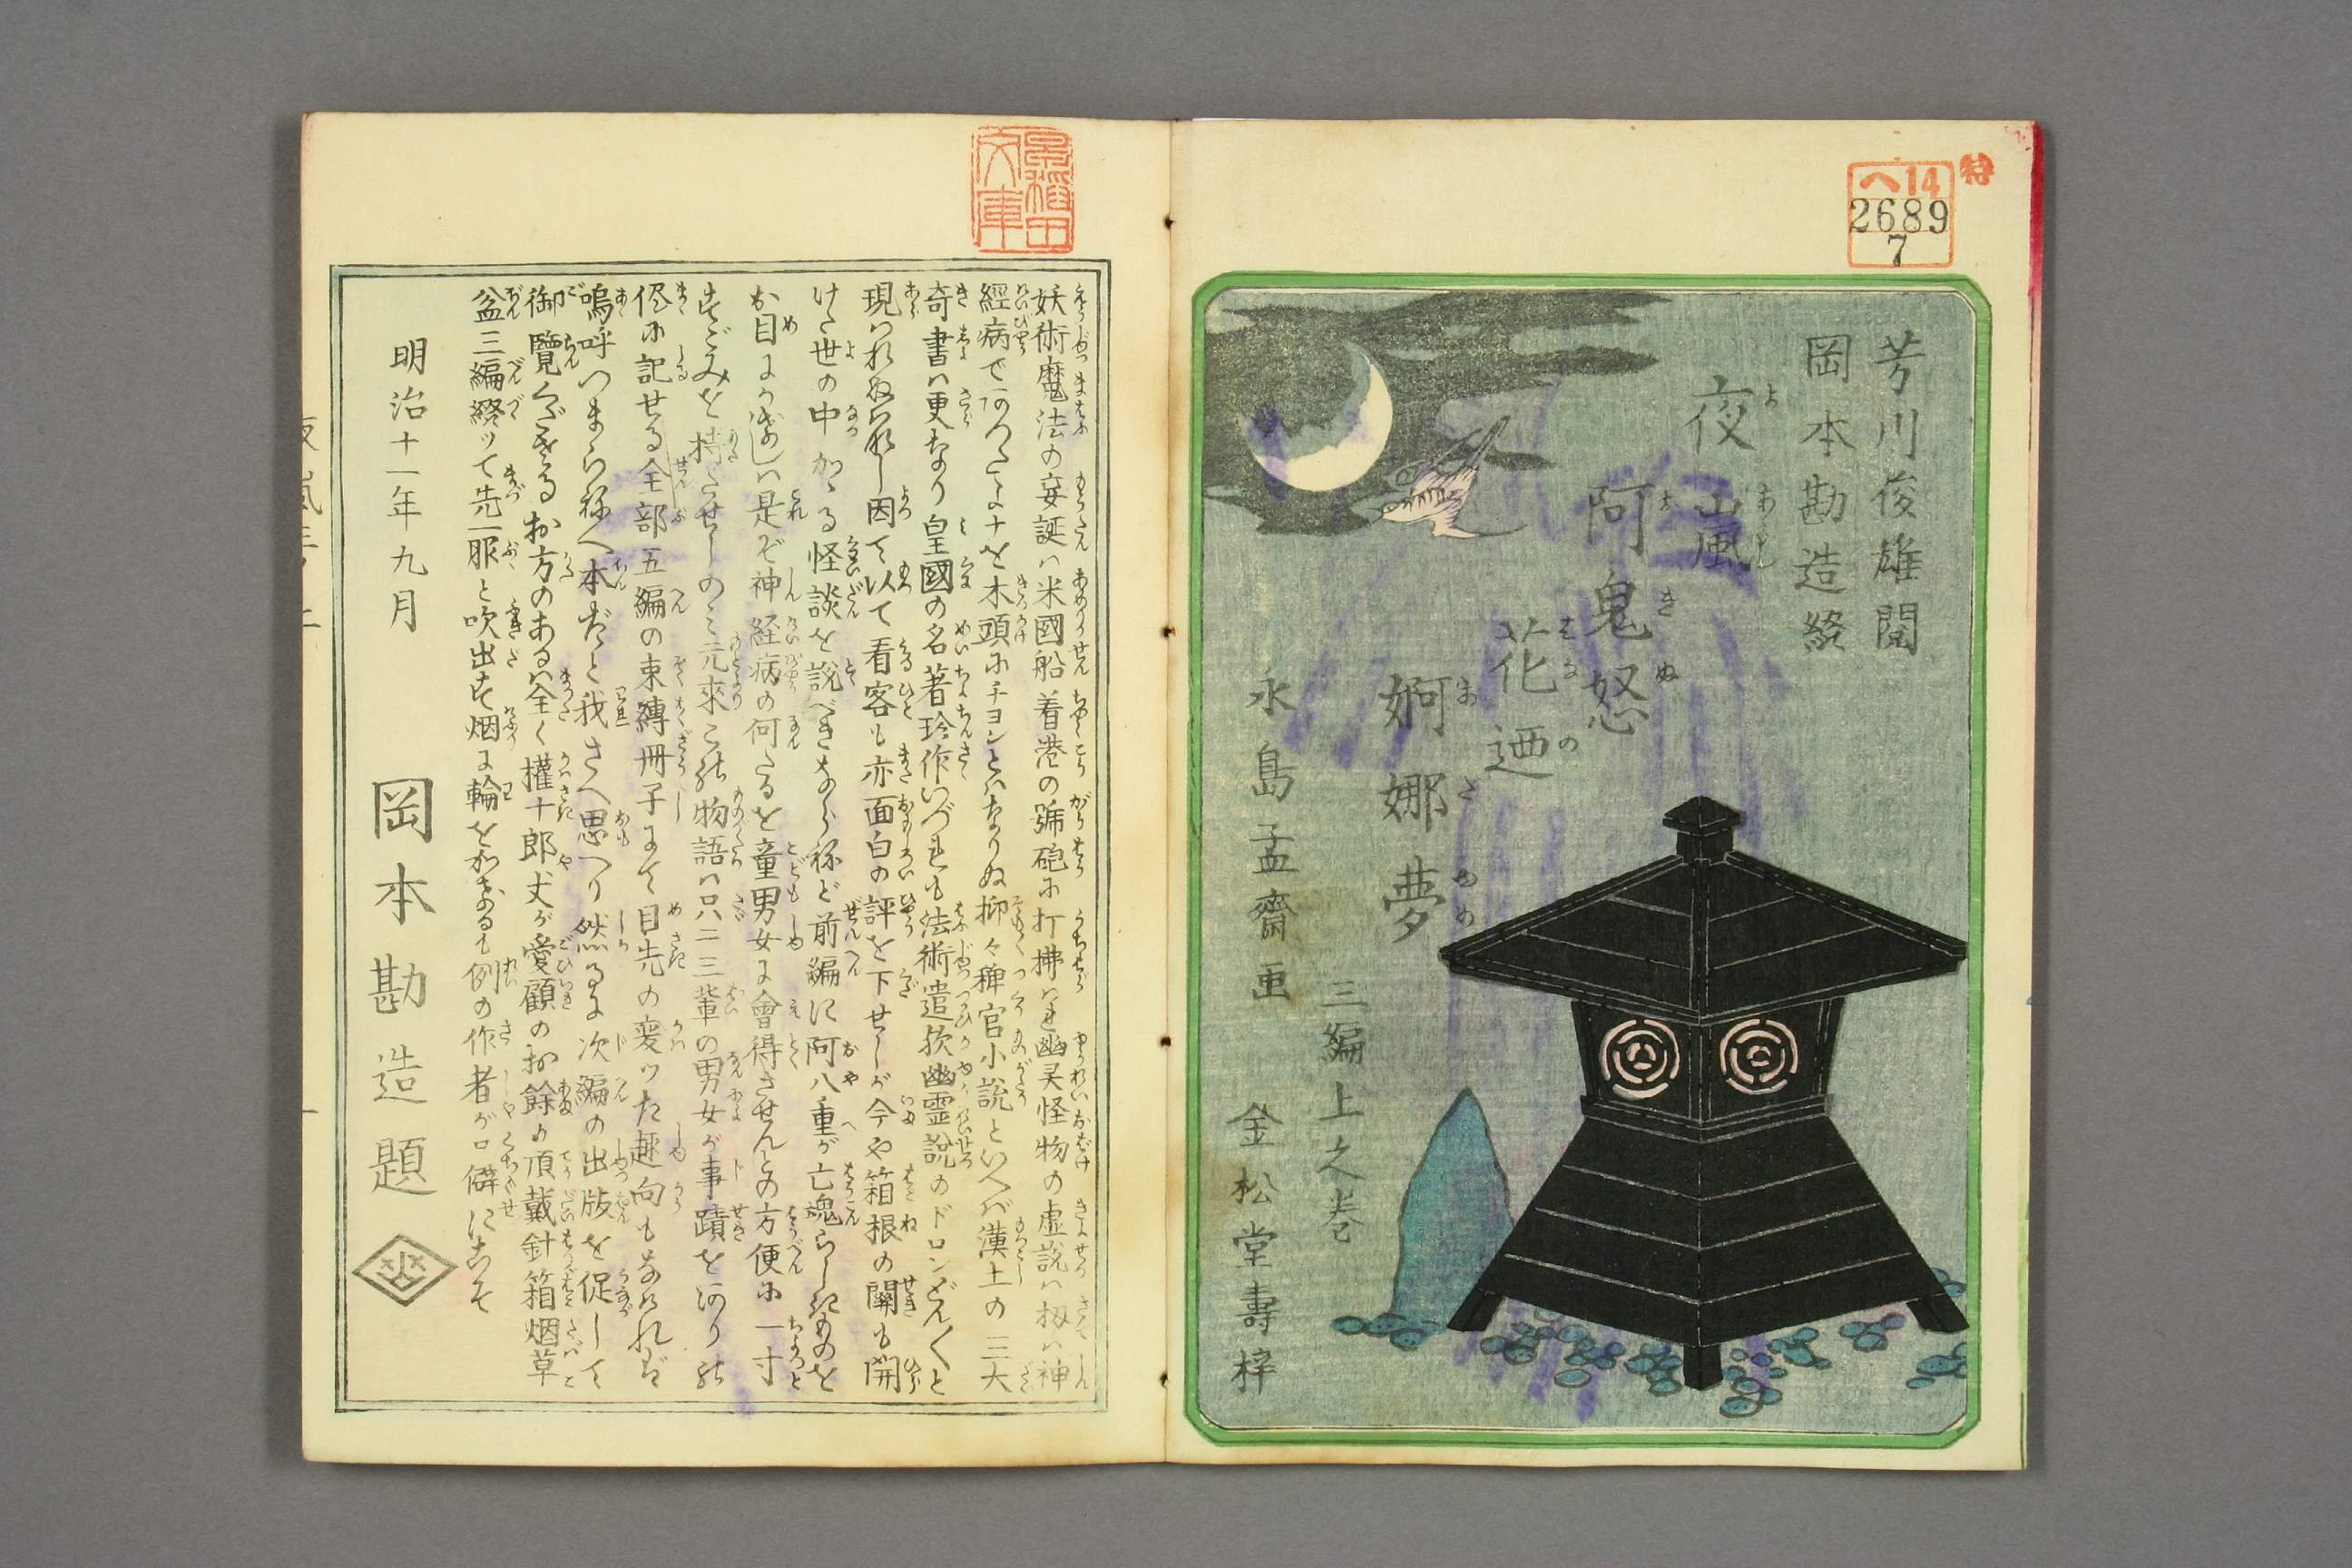 特
ヘ14
2689
7
芳川俊雄閲
岡本勘造綴
夜嵐
よあらし
阿鬼怒
おきぬ
花廼
はなの
婀娜夢
あだゆめ
三編上之巻
永島孟齋画
金松堂壽梓
早稲田文庫
妖術魔法の妄誕ハ米國船着港の號砲に打拂ハれ幽灵怪物の虚説ハ扨ハ神
經病であつたよナを木頭にチヨンとハなりぬ抑々稗官小説といへバ漢土の三大
奇書ハ更なり皇國の名著珍作いづれも法術遣欤幽霊説のドロンどん〱と
現ハれねバ内れし因て以て看客も亦面白の評を下せしが今や箱根の關も開
けた世の中かゝる怪談を説べきならねど前編に阿八重が亡魂らしきものを
お目にかけしハ是ぞ神経病の何たるを童男女に會得させんとの方便に一寸
すごみを持たせしのミ元來この物語ハ只二三輩の男女が事蹟をありの
侭に記せる全部五編の束縛冊子にて目先の変ツた趣向もなけれバ
嗚呼つまらねへ本だと我さへ思へり然るに次編の出版を促して
御覧くださるお方のあるハ全く權十郎丈が愛顧のお餘り頂戴針箱烟草
盆三編綴ツて先一服と吹出す烟に輪をかけるも例の作者が口癖にこそ
明治十一年九月
岡本勘造題
夜嵐三ノ上
一